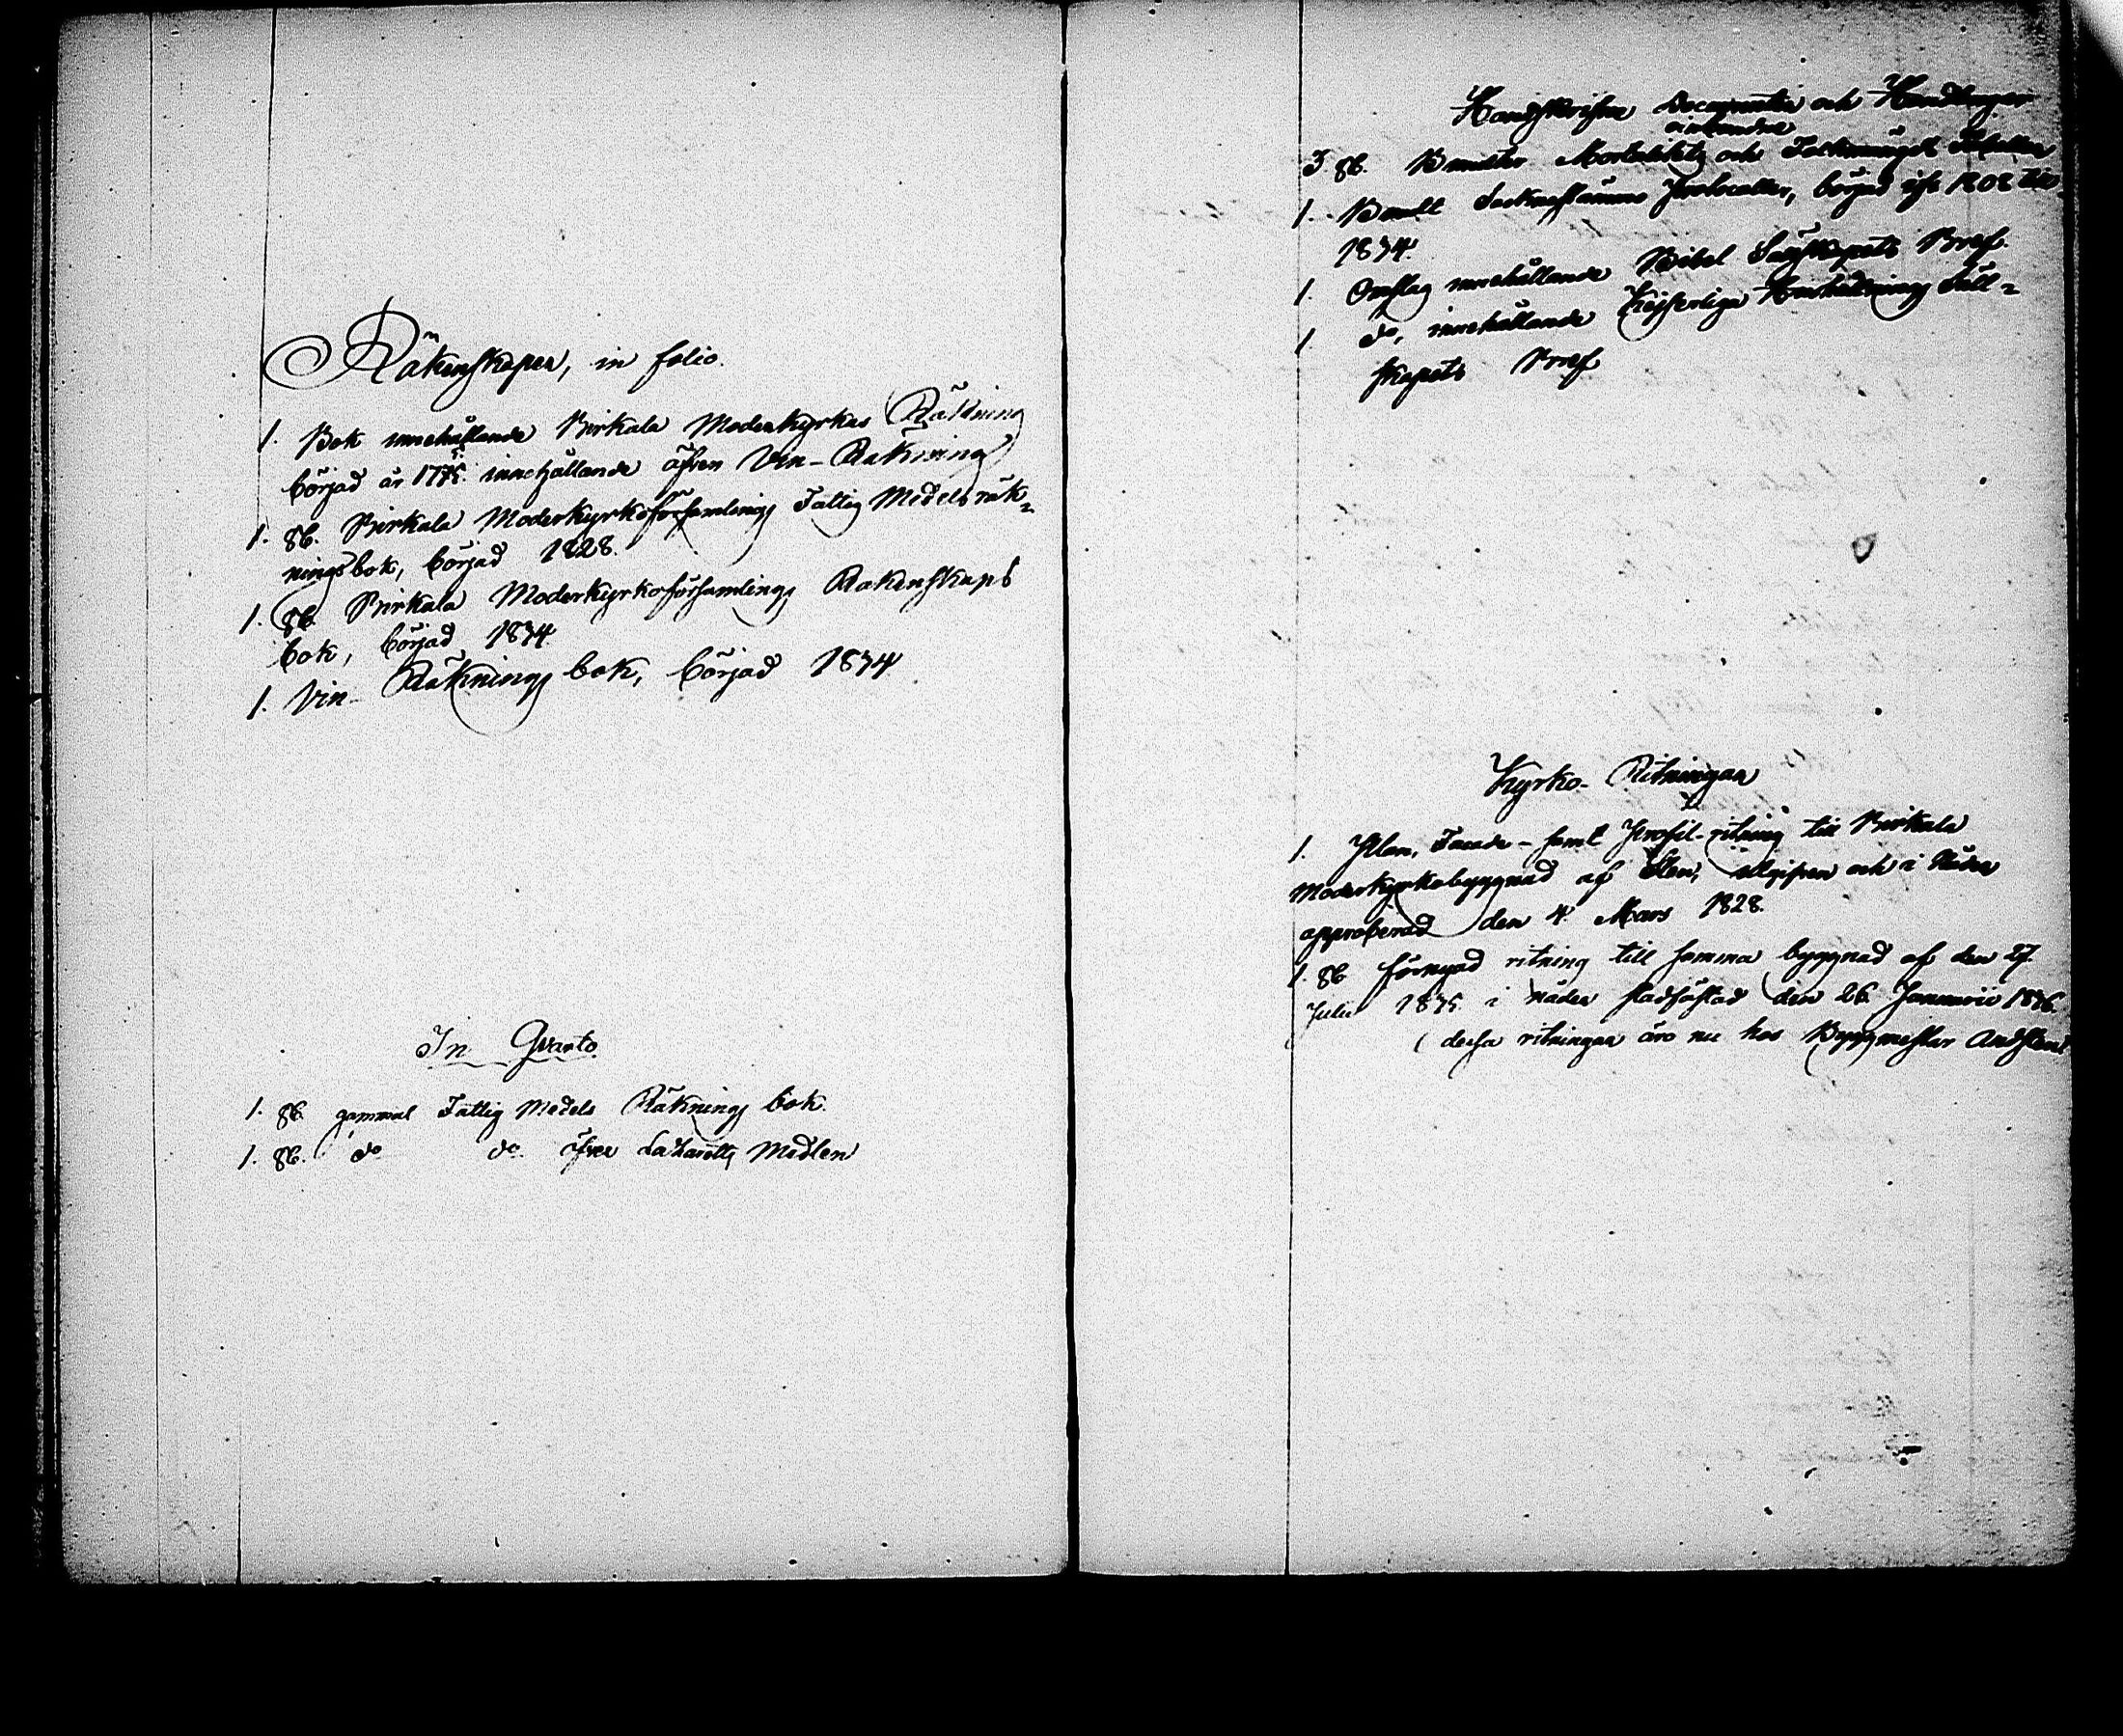 Räkenskaper, in folio.
1. Bok innehållande Birkala Moderkyrkas Räkning
börjad år 1775. innehållande äfven Vin-Räkning
1. st. Birkala Moderkyrkoförsamlings Fattig Medels räk-
ningsbok, börjad 1828.
1. st Birkala Moderkyrkoförsamlings Räkenskaps
bok, börjad 1834
1. Vin- Räknings bok, börjad 1834
In Qvarto.
1. st. gammal Fattig Medels Räknings bok.
1. st. do do. öfver Lazaretts Medlen
Handskrifna Documenter och Handlingar
3 st. Buntar Mortalitets och Folkmängds Tabeller
1. Bundt Sockenstämme Protocoller, börjad ifr. 1808 till
1834.
1. Omslag innehållande Bibel Sällskapets Bref.
1 do, innehållande Kejserliga Hushållnings Säll-
skapets Bref
Kyrko- Ritningar
1. Plan, Facade- samt Profil-ritning till Birkala
Moderkyrkobyggnad af Sten, utgifven och i Nåder
approberad den 4. Mars 1828.
1. st förnyad ritning till samma byggnad af den 27
Julii 1835. i nåder stadfästad den 26 Januarii 1836.
( dessa ritningar äro nu hos Byggmestar Andsten